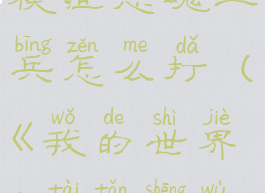 bīng zěn me dǎ
兵怎么打（
wǒ de shì jiè
《我的世界
tài tǎn shēng wù